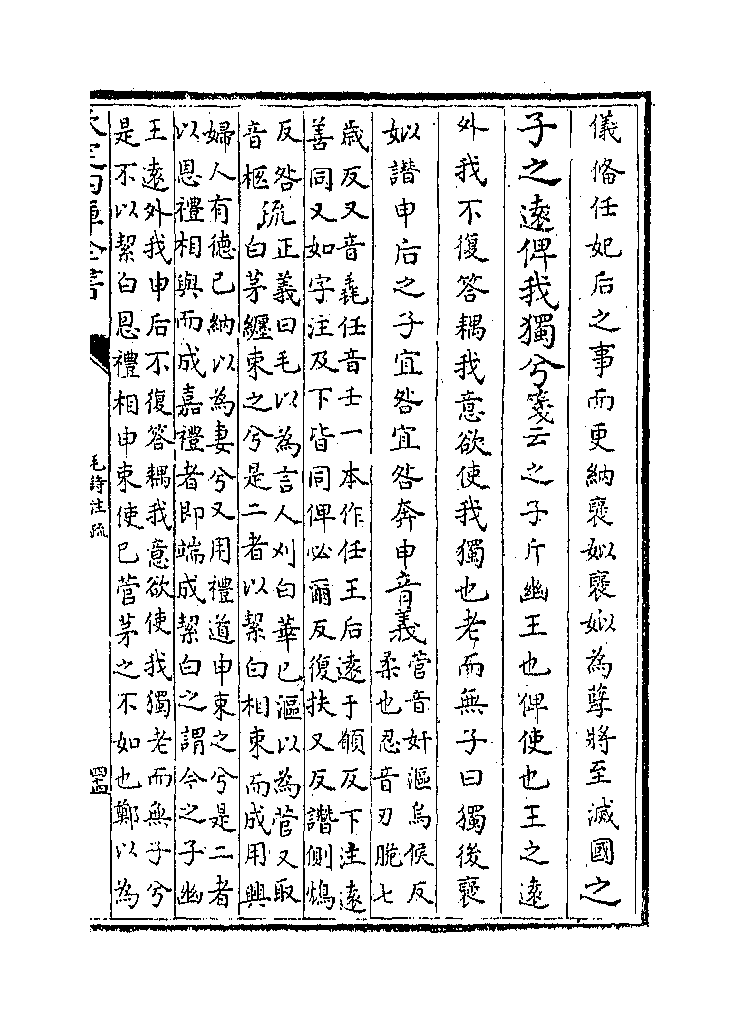 儀備任妃后之事而更納褒姒褒姒為孽將至滅國之
子之遠俾我獨兮箋云之子斥幽王也俾使也王之遠
外我不復答耦我意欲使我獨也老而無子曰獨後褒
姒譖申后之子宜咎宜咎奔申音義菅音奸漚烏候反
柔也忍音刃脆七
歳反又音毳任音壬一本作任王后遠于頋反下注遠
善同又如字注及下皆同俾必爾反復扶又反譖側鴆
反咎
音柩
疏正義曰毛以為言人刈白華已漚以為菅又取
白茅纏束之兮是二者以絜白相束而成用興
婦人有德已納以為妻兮又用禮道申束之兮是二者
以恩禮相與而成嘉禮者即端成絜白之謂今之子幽
王遠外我申后不復答耦我意欲使我獨老而無子兮
是不以絜白恩禮相申束使已菅茅之不如也鄭以為
欽定四庫全書
毛詩注疏